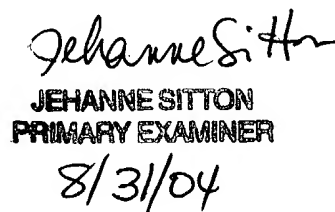 Jehanne Sitton
JEHANNE SITTON
PRIMARY EXAMINER
8/31/04